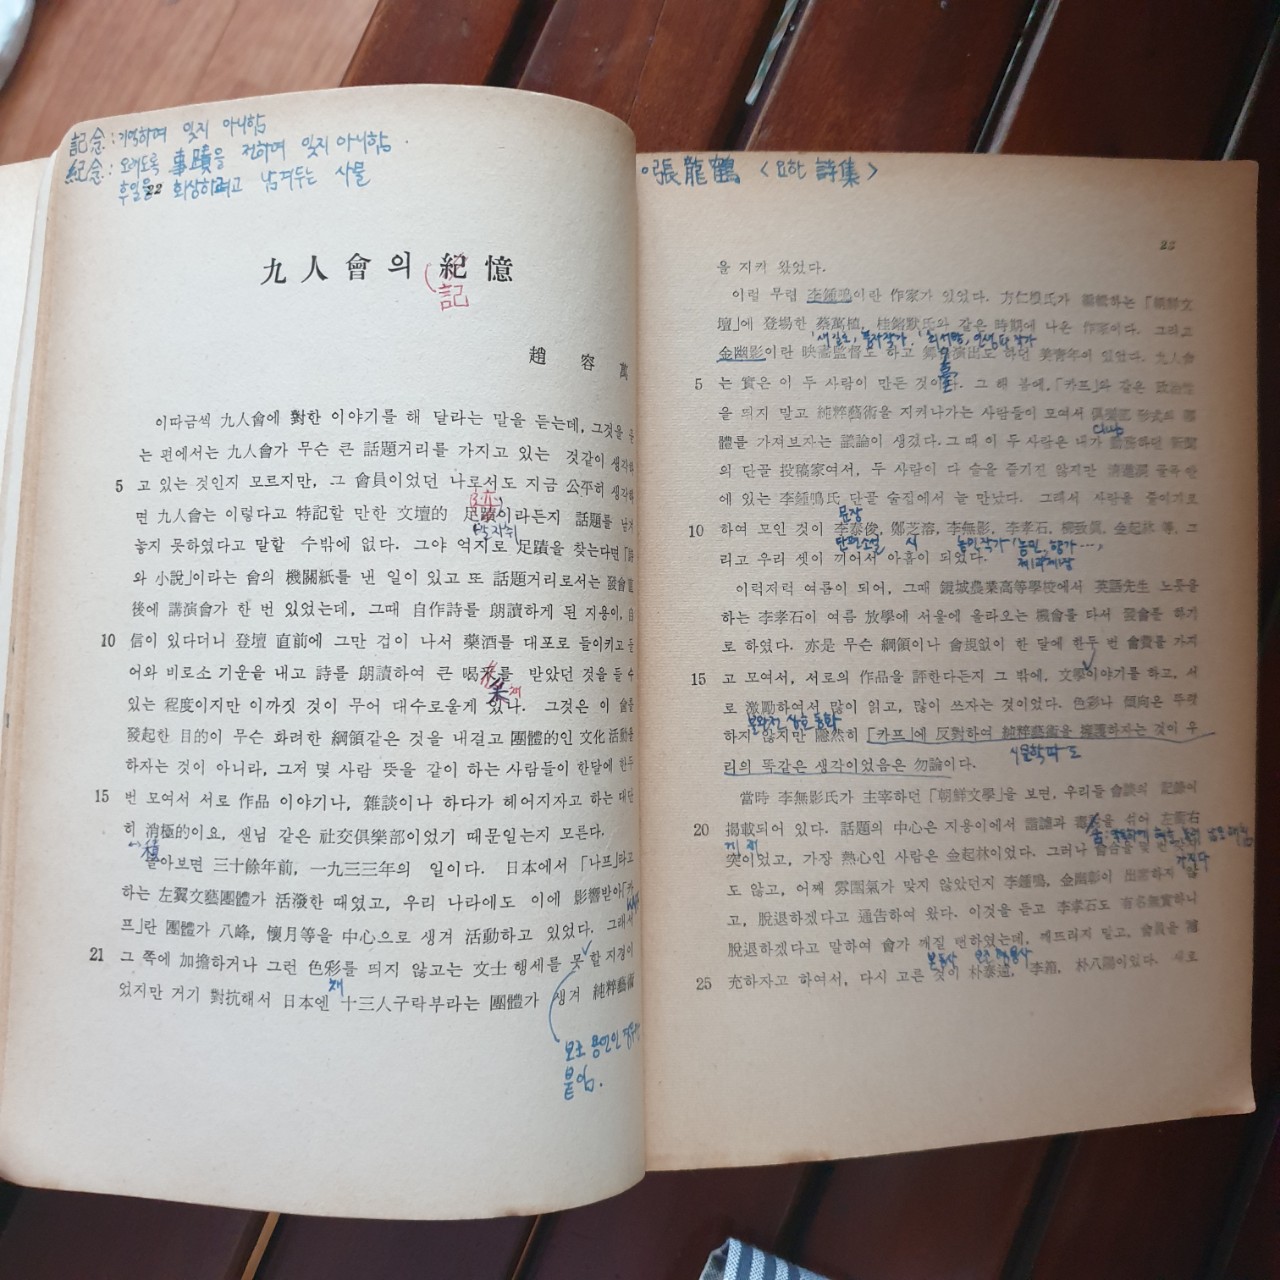 記念 : 기억하며 잊지 아니함
紀念 : 오래도록 事蹟을 전하며 잊지 아니함.
후일을 회상하려고 남겨두는 사물
22
九人會의 紀憶
記
趙容萬
이따금씩 九人會에 對한 이야기를 해 달라는 말을 듣는데, 그것을
는 편에서는 九人會가 무슨 큰 話題거리를 가지고 있는 것같이 생각하
5 고 있는 것인지 모르지만, 그 會員이었던 나로서도 지금 公平히 생각하
면 九人會는 이렇다고 特記할 만한 文壇的 足蹟이라든지 話題를 남겨
발자취
놓지 못하였다고 말할 수밖에 없다. 그야 억지로 足蹟을 찾는다면 「詩
와 小說」이라는 會의 機關紙를 낸 일이 있고 또 話題거리로서는 發會
後에 講演會가 한 번 있었는데, 그때 自作詩를 朗讀하게 된 지용이, 自
10 信이 있다더니 登壇 直前에 그만 겁이 나서 藥酒를 대포로 들이키고 들
어와 비로소 기운을 내고 詩를 朗讀하여 큰 喝采를 받았던 것을 들 수
采
있는 程度이지만 이까짓 것이 무어 대수로울게 있나. 그것은 이 會를
發起한 目的이 무슨 화려한 綱領같은 것을 내걸고 團體的인 文化 活動을
하자는 것이 아니라, 그저 몇 사람 뜻을 같이 하는 사람들이 한달에 한두
15 번 모여서 서로 作品 이야기나, 雜談이나 하다가 헤어지자고 하는 대단
히 消極的이요, 샌님 같은 社交俱樂部이었기 때문일는지 모른다.
돌아보면 三十餘年前, 一九三三年의 일이다. 日本에서 「나프」라고
하는 左翼文藝團體가 活潑한 때였고, 우리 나라에도 이에 影響받아 「카
프」란 團體가 八峰, 懷月等을 中心으로 생겨 活動하고 있었다. 그래서
21 그 쪽에 加擔하거나 그런 色彩를 띄지 않고는 文士 행세를 못 할 지경이
었지만 거기 對抗해서 日本엔 十三人구락부라는 團體가 생겨 純粹藝術
보조 용언인
붙임.
○張龍鶴 〈요한 詩集〉
23
을 지켜 왔었다.
이럴 무렵 李鍾鳴이란 作家가 있었다. 方仁根氏가 編輯하는 「朝鮮文
壇」에 登場한 蔡萬植, 桂鎔默氏와 같은 時期에 나온 作家이다. 그리고
金幽影이란 映畵監督도 하고 演出도 하던 美青年이 있었다. 九人會
5 는 實은 이 두 사람이 만든 것이다. 그 해 봄에, 「카프」와 같은 政治性
을 띄지 말고 純粹藝術을 지켜나가는 사람들이 모여서 俱樂部 形式의 團
體를 가져보자는 議論이 생겼다. 그때 이 두 사람은 내가 勤務하던 新聞
의 단골 投稿家여서, 두 사람이 다 술을 즐기진 않지만 淸進洞 골목 안
에 있는 李鍾鳴氏 단골 술집에서 늘 만났다. 그래서 사람을 몰이기로
문장
10 하여 모인 것이 李泰俊, 鄭芝溶, 李無影, 李孝石, 柳致眞, 金起林 等, 그
단편소설 시 농민작가
리고 우리 셋이 끼어서 아홉이 되었다.
이럭저럭 여름이 되어, 그때 鏡城農業高等學校에서 英語先生 노릇을
하는 李孝石이 여름 放學에 서울에 올라오는 機會를 타서 發會를 하기
로 하였다. 亦是 무슨 綱領이나 會規없이 한 달에 한두 번 會費를 가지
15 고 모여서, 서로의 作品을 評한다든지 그 밖에, 文學이야기를 하고, 서
로 激勵하여서 많이 읽고, 많이 쓰자는 것이었다. 色彩나 傾向은 뚜렷
하지 않지만 隱然히 「카프」에 反對하여 純粹藝術을 擁護하자는 것이 우
시문학파 도
리의 똑같은 생각이었음은 勿論이다.
當時 李無影氏가 主宰하던 「朝鮮文學」을 보면, 우리들 會談의 記錄이
20 揭載되어 있다. 話題의 中心은 지용이에서 諧謔과 毒舌을 섞어 左衝右
게 재
突이었고, 가장 熱心인 사람은 金起林이었다. 그러나
도 않고, 어째 雰圍氣가 맞지 않았던지 李鍾鳴, 金幽影이 出席하지 않
고, 脫退하겠다고 通告하여 왔다. 이것을 듣고 李孝石도 有名無實하니
脫退하겠다고 말하여 會가 깨질 뻔하였는데, 깨뜨리지 말고, 會員을 補
25 充하자고 하여서, 다시 고른 것이 朴泰遠, 李箱, 朴八陽이었다. 새로